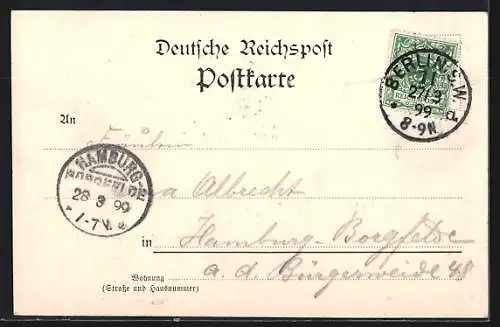 Deutsche Reichspost
Postkarte
BERLIN S.W.
11
27/3
99
8-9N
a.
An
Fräulein
Albrecht
HAMBURG-
BORGFELDE
28 3 99
1-7V.
in Hamburg-Borgfelde
a. d. Bürgerweide 48
Wohnung
(Straße und Hausnummer)